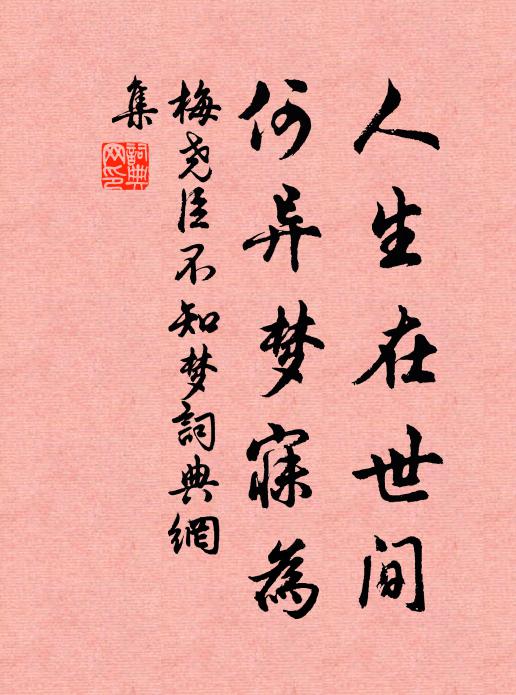 人生在世间
何异梦寐為
梅尧臣不知梦詞典網
集
詞典
网印